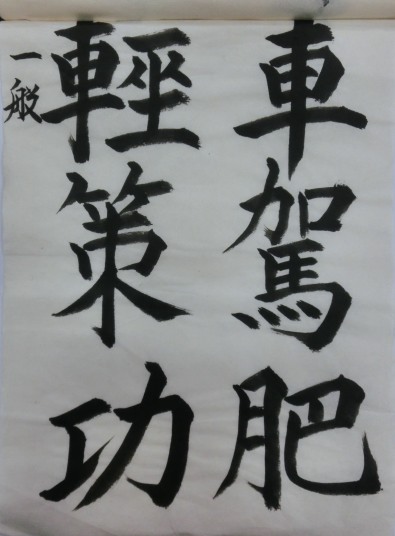 車駕肥
輕策功
一般